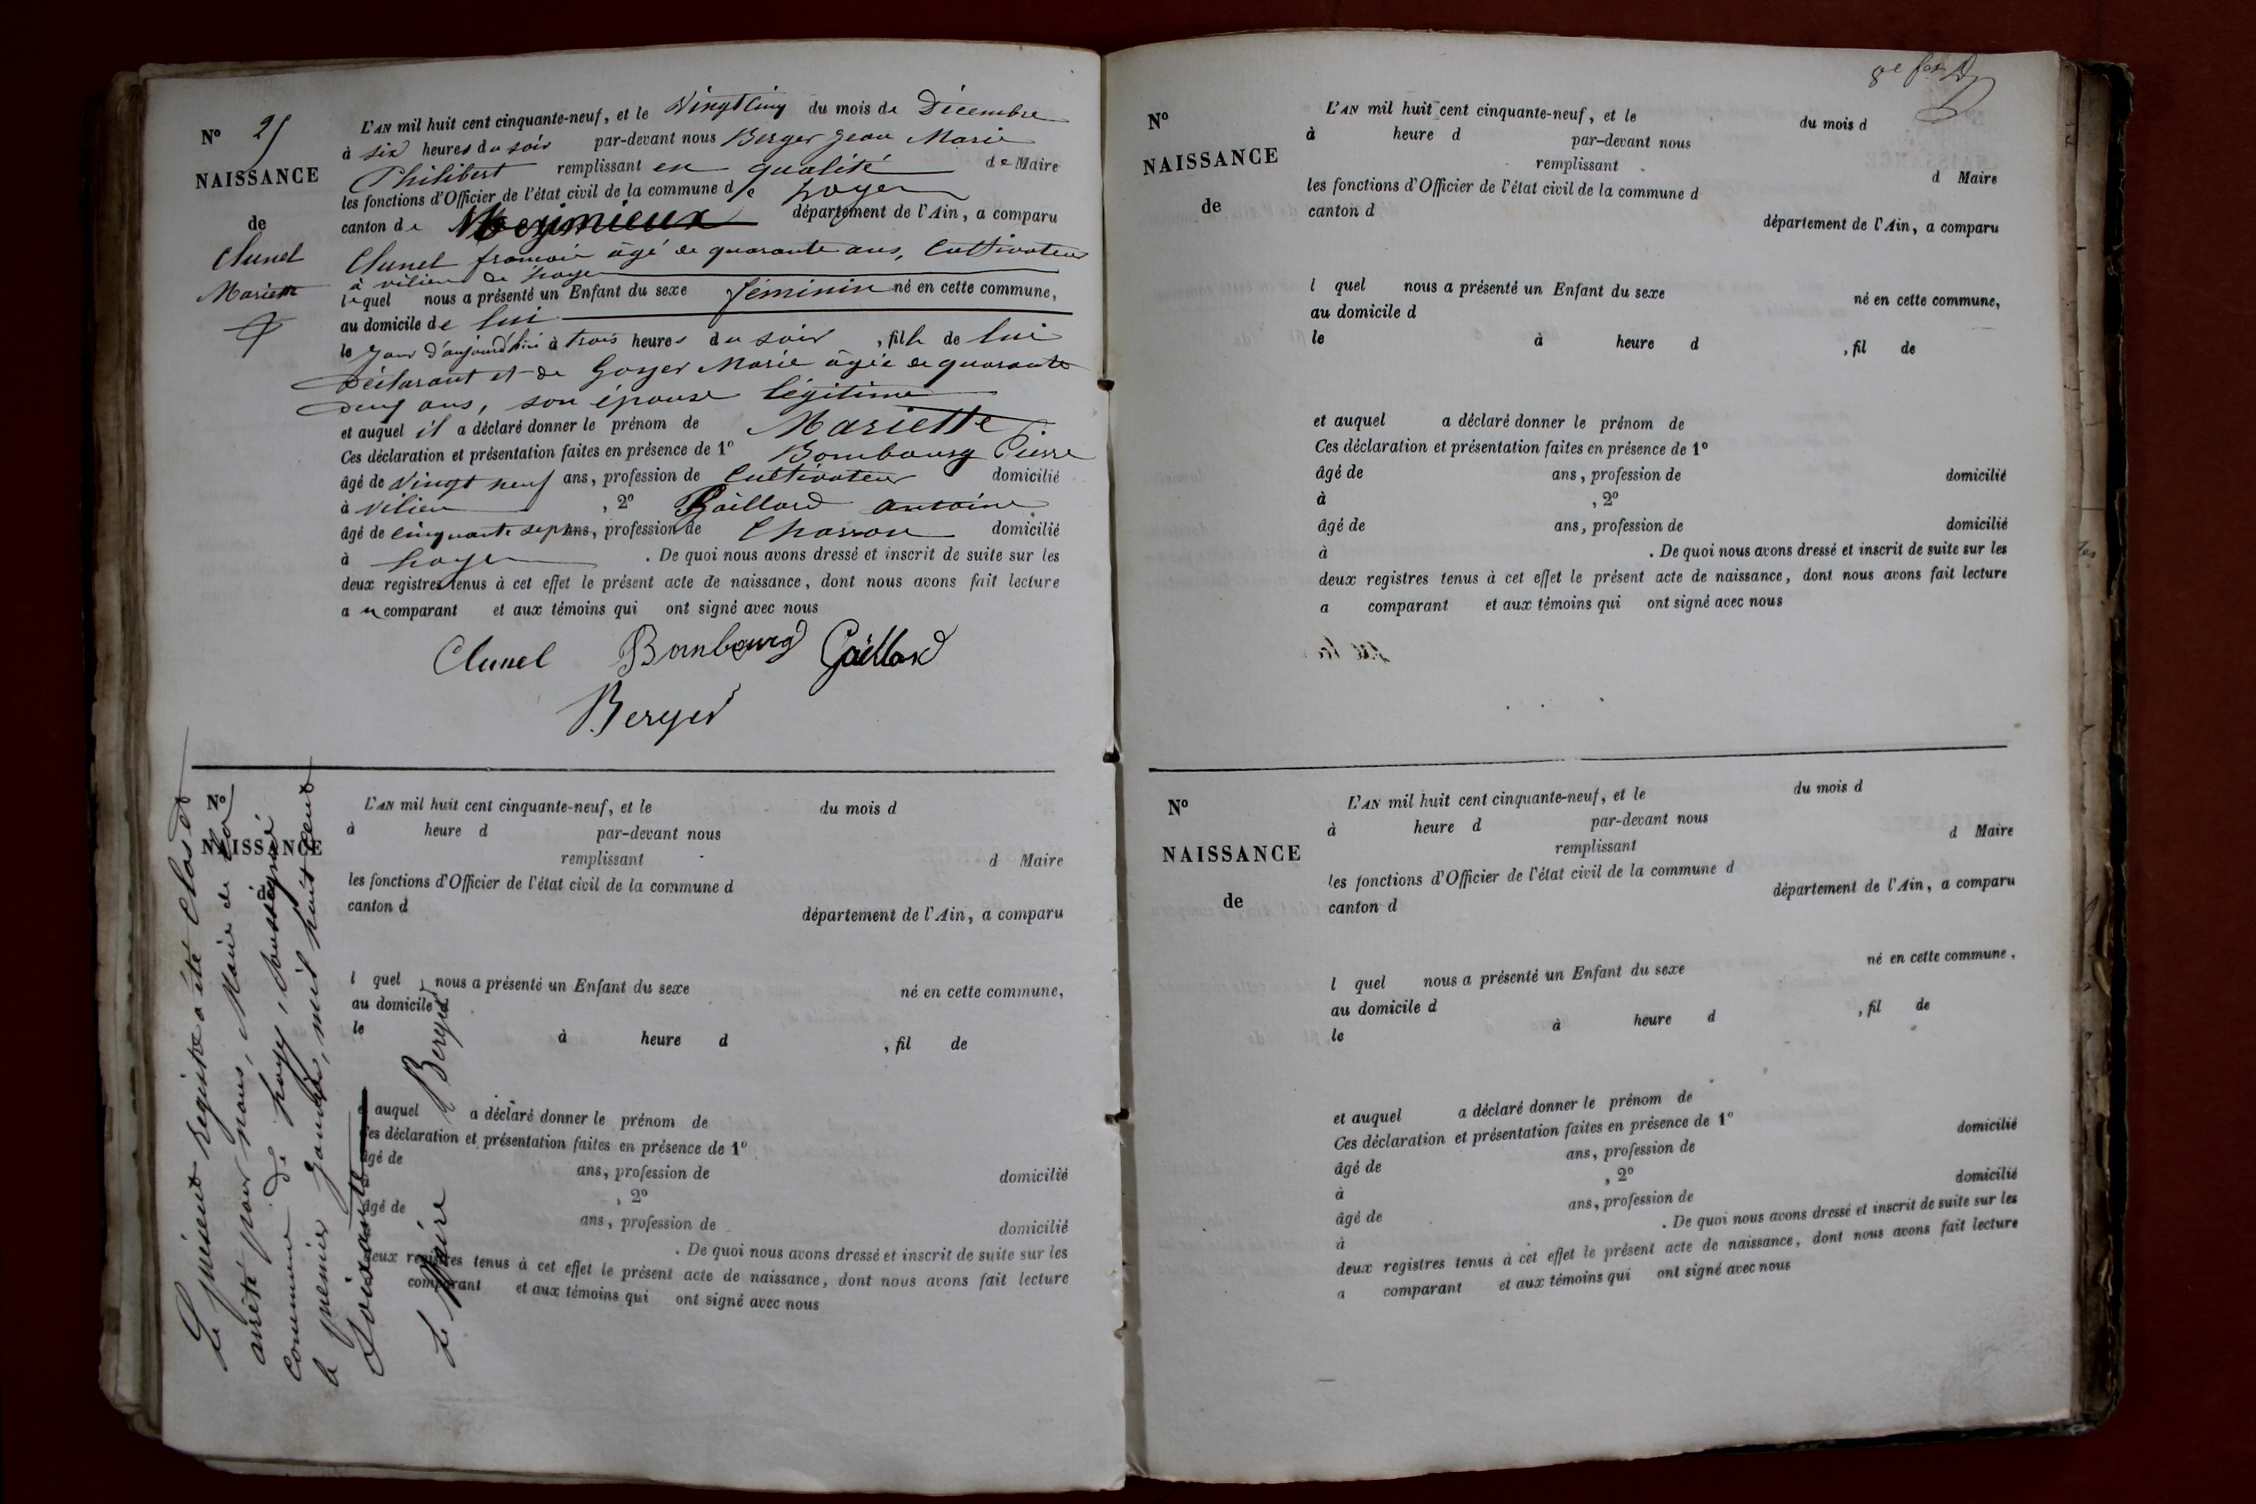 N° 25
NAISSANCE
de
Clunel
Mariette
L'AN mil huit cent cinquante-neuf, et le Vingt Cinq du mois de Décembre
à six heures du soir par-devant nous Berger Jean Marie
Philibert remplissant en qualité de Maire
les fonctions d'Officier de l'état civil de la commune de
canton de Meximieux département de l'Ain, a comparu
Clunel françois âgé de quarante ans, Cultivateur
à vilieu de
lequel nous a présenté un Enfant du sexe féminin né en cette commune,
au domicile de lui
le jour d'aujourd'hui à trois heures du soir, fille de lui
Déclarant et de Goyer Marie âgée de quarante
deux ans, son épouse légitime
et auquel il a déclaré donner le prénom de Mariette
Ces déclaration et présentation faites en présence de 1° Bombourg Pierre
âgé de Vingt neuf ans, profession de Cultivateur domicilié
à Vilieu, 2° Gaillard antoine
âgé de cinquante sept ans, profession de Charron domicilié
à . De quoi nous avons dressé et inscrit de suite sur les
deux registres tenus à cet effet le présent acte de naissance, dont nous avons fait lecture
au comparant et aux témoins qui ont signé avec nous
Clunel Bombourg Gaillard
Berger
N°
NAISSANCE
d
L'AN mil huit cent cinquante-neuf, et le du mois d
à heure d par-devant nous
remplissant d Maire
les fonctions d'Officier de l'état civil de la commune d
canton d département de l'Ain, a comparu
l quel nous a présenté un Enfant du sexe né en cette commune,
au domicile d
le à heure d , fil de
auquel a déclaré donner le prénom de
Ces déclaration et présentation faites en présence de 1°
âgé de ans, profession de domicilié
, 2°
âgé de ans, profession de domicilié
. De quoi nous avons dressé et inscrit de suite sur les
deux registres tenus à cet effet le présent acte de naissance, dont nous avons fait lecture
comparant et aux témoins qui ont signé avec nous
Le présent registre a été Clos et
arrêté par nous, Maire de la
commune de , soussigné
le premier Janvier, mil huit cent
Soixante
Le Maire Berger
8e
N°
NAISSANCE
de
L'AN mil huit cent cinquante-neuf, et le du mois d
à heure d par-devant nous
remplissant d Maire
les fonctions d'Officier de l'état civil de la commune d
canton d département de l'Ain, a comparu
l quel nous a présenté un Enfant du sexe né en cette commune,
au domicile d
le à heure d , fil de
et auquel a déclaré donner le prénom de
Ces déclaration et présentation faites en présence de 1°
âgé de ans, profession de domicilié
à , 2°
âgé de ans, profession de domicilié
à . De quoi nous avons dressé et inscrit de suite sur les
deux registres tenus à cet effet le présent acte de naissance, dont nous avons fait lecture
a comparant et aux témoins qui ont signé avec nous
N°
NAISSANCE
de
L'AN mil huit cent cinquante-neuf, et le du mois d
à heure d par-devant nous
remplissant d Maire
les fonctions d'Officier de l'état civil de la commune d
canton d département de l'Ain, a comparu
l quel nous a présenté un Enfant du sexe né en cette commune,
au domicile d
le à heure d , fil de
et auquel a déclaré donner le prénom de
Ces déclaration et présentation faites en présence de 1°
âgé de ans, profession de domicilié
à , 2°
âgé de ans, profession de domicilié
à . De quoi nous avons dressé et inscrit de suite sur les
deux registres tenus à cet effet le présent acte de naissance, dont nous avons fait lecture
a comparant et aux témoins qui ont signé avec nous